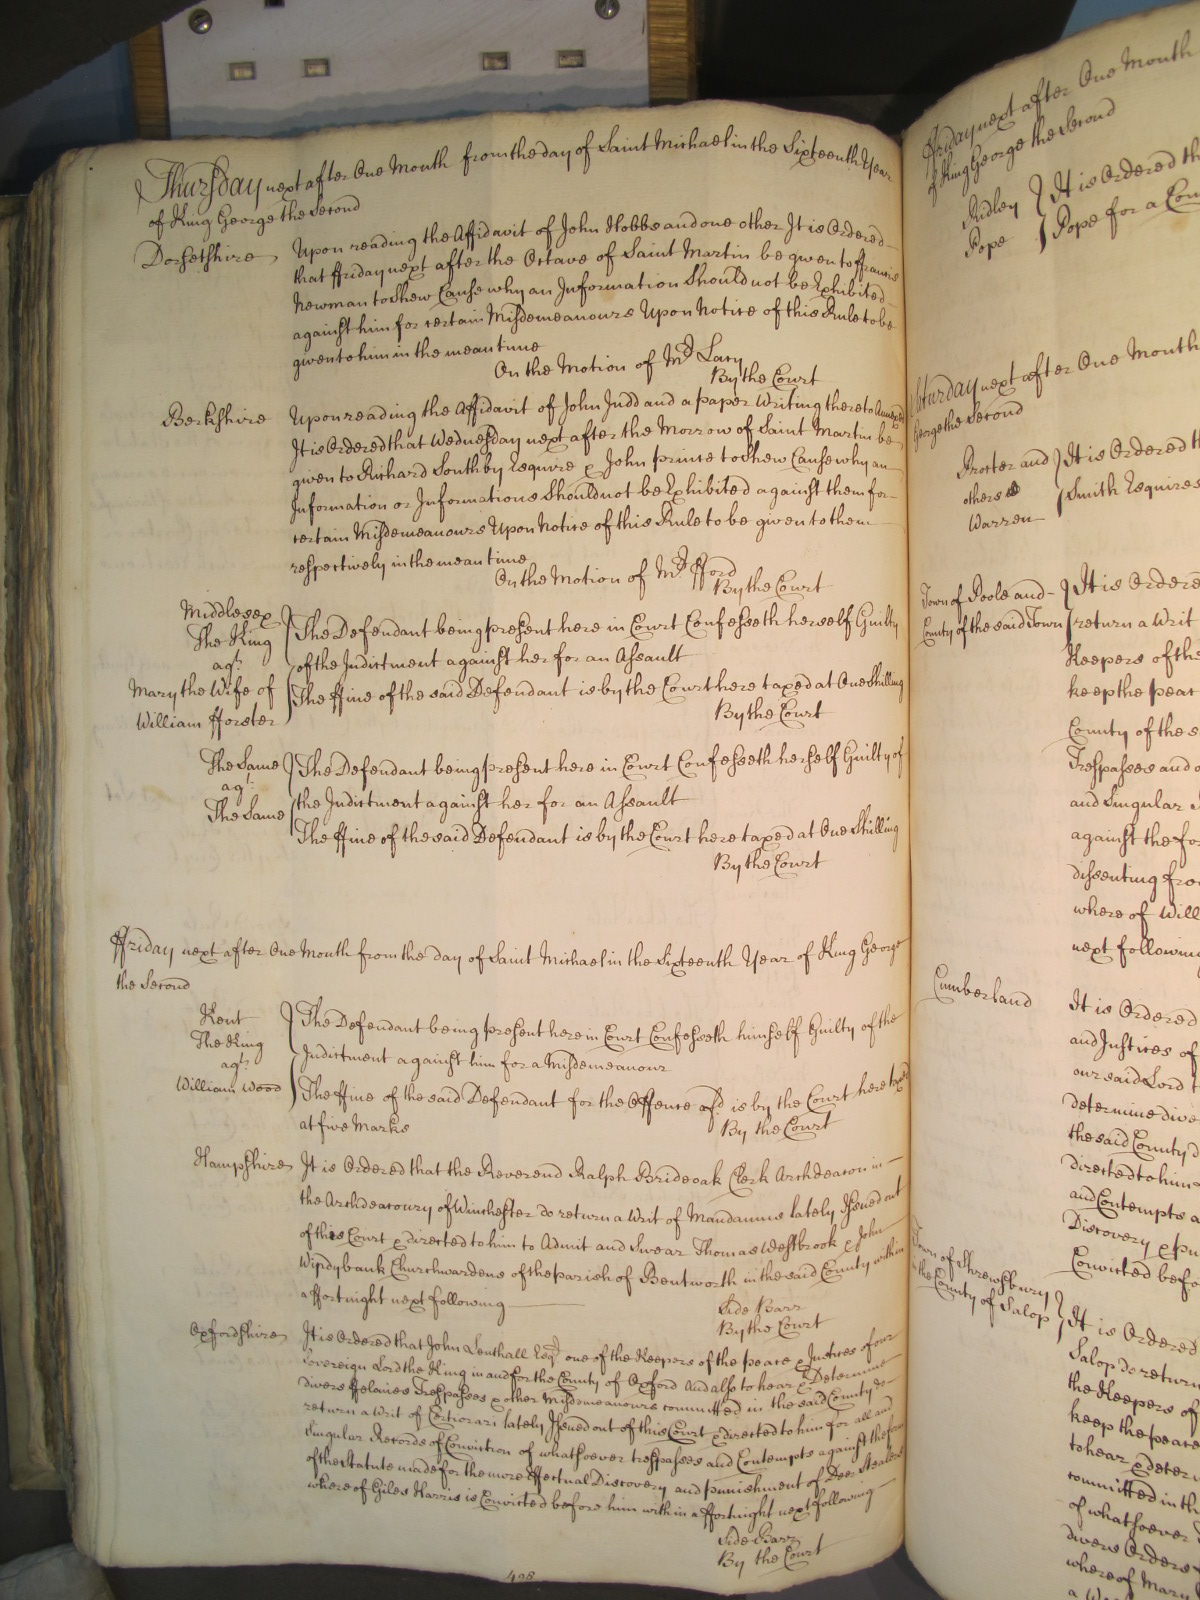 Thursday next after One Month from the day of Saint Michael in the Sixteenth Year
of King George the Second
Dorsetshire Upon reading the Affidavit of John Hobbs and one other It is Ordered
that ffriday next after the Octave of Saint Martin be given to ffrancis
Newman to Shew Cause why an Information Should not be Exhibited
against him for certain Misdemeanours Upon Notice of this Rule to be
given to him in the mean time
On the Motion of Mr Lacy
By the Court
Berkshire Upon reading the Affidavit of John Judd and a paper Writing thereto Annexed
It is Ordered that Wednesday next after the Morrow of Saint Martin be
given to Richard Southby Esquire & John prince to Shew Cause why an
Information or Informations Should not be Exhibited against them for
certain Misdemeanours Upon Notice of this Rule to be given to them
respectively in the mean time
On the Motion of Mr fford
By the Court
Middlesex
The King
agt
Mary the Wife of
William fforster
The Defendant being present here in Court Confesseth herself Guilty
of the Indictment against her for an Assault
The ffine of the said Defendant is by the Court here taxed at One Shilling
By the Court
The Same
agt
The Same
The Defendant being present here in Court Confesseth herself Guilty of
the Indictment against her for an Assault
The ffine of the said Defendant is by the Court here taxed at One Shilling
By the Court
ffriday next after One Month from the day of Saint Michael in the Sixteenth Year of King George
the Second
Kent
The King
agt
William Wood
The Defendant being present here in Court Confesseth himself Guilty of the
Indictment against him for a Misdemeanour
The ffine of the said Defendant for the Offence afd is by the Court here taxed
at five Marks
By the Court
Hampshire It is Ordered that the Reverend Ralph Brideoak Clerk Archdeacon in
the Archdeaconry of Winchester do return a Writ of Mandamus lately Issued out
of this Court & directed to him to Admit and Swear Thomas Westbrook & John
Churchwardens of the parish of Bentworth in the said County within
a ffortnight next following
Side Barr
By the Court
Oxfordshire It is Ordered that John Lenthall Esqr one of the Keepers of the peace & Justices of our
Sovereign Lord the King in and for the County of Oxford And also to hear & Determine
divers ffelonies Trespasses & other Misdemeanours committed in the said County do
return a Writ of Certiorari lately Issued out of this Court & directed to him for all and
Singular Records of Conviction of whatsoever trespasses and Contempts against the form
of the Statute made for the more Effectual Discovery and punishment of Deer Stealers
where of Giles Harris is Convicted before him within a ffortnight next following
Side Barr
By the Court
498
ffriday next after One Month
of King George the Second
Ridley
Pope
It is Ordered th
Pope for a Con
Saturday next after One Month
George the Second
Procter and
others
Warren
It is Ordered th
Smith Esquires
Town of Poole and
County of the said Town
It is Ordere
return a Writ
Keepers of the
keep the peace
County of the s
Trespasses and o
and Singular
against the fo
dissenting fro
where of Will
next following
Cumberland It is Ordered
and Justices of
our said Lord t
determine dive
the said County d
directed to him
and Contempts a
Discovery & pu
Convicted befo
Town of Shrewsbury
in the County of Salop
It is Ordered
Salop do return
the Keepers of
keep the peace
to hear & deter
committed in th
of whatsoever
divers Orders
whereof Mary